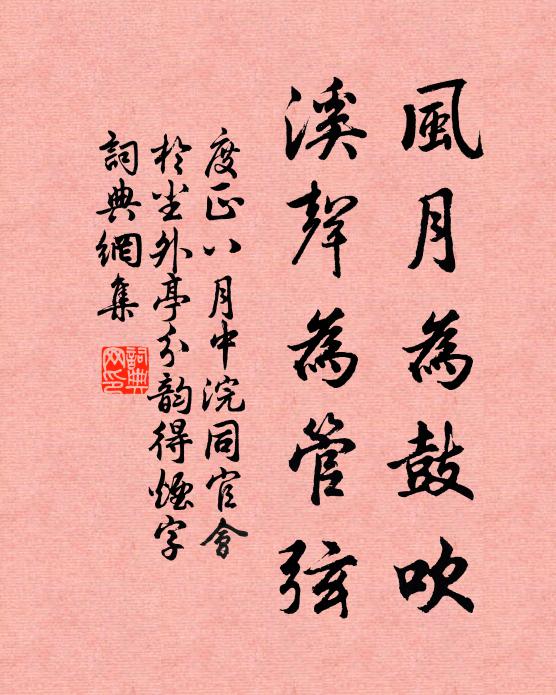 風月為鼓吹
溪聲為管弦
度正八月中浣同官會
於尘外亭分韵得煙字
詞典網集
詞典網印